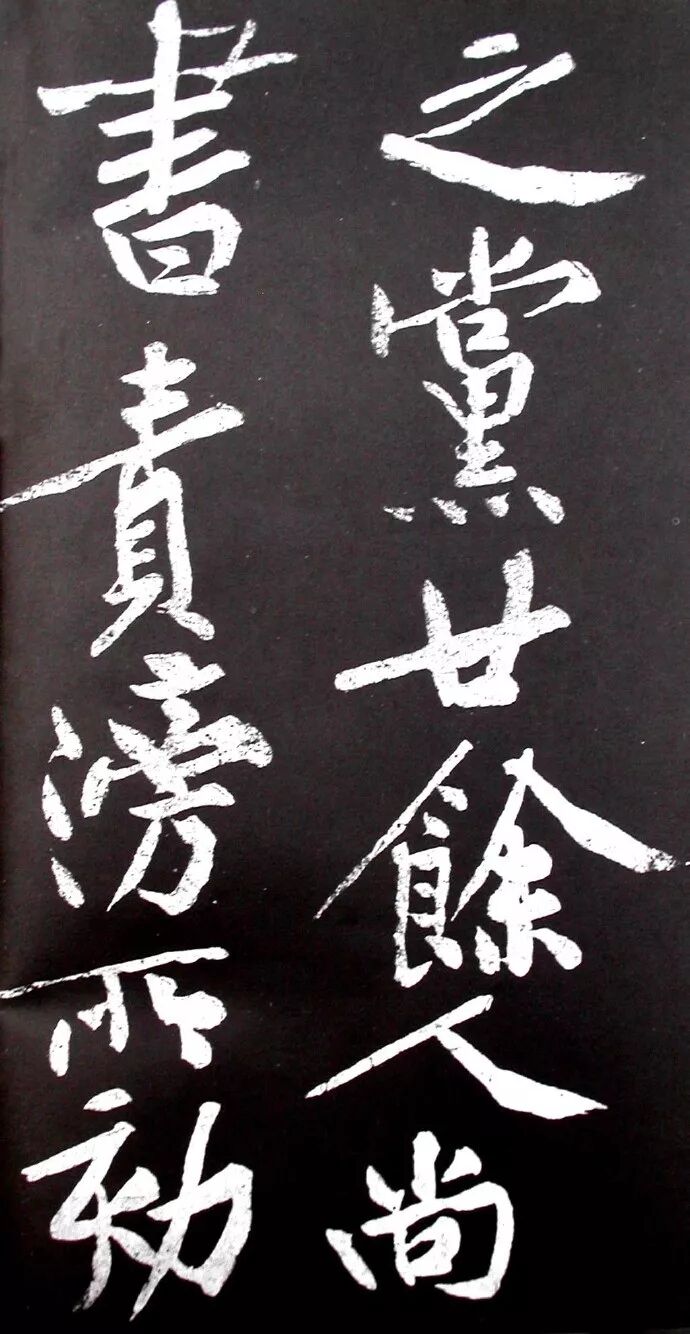 之黨廿餘人尚
書責滂所劾